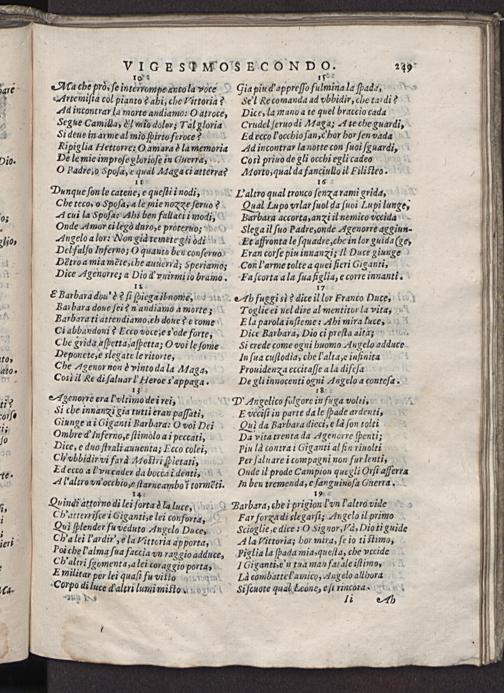 VIGESIMOSECONDO. 249
10
Ma che prò, se interrompe anto la voce
Artemisia col pianto? ahi, che Vittoria?
Ad incontrar la morte andiamo: O atroce,
Segue Camilla, è'l mio dolor; Tal gloria
Si deue in arme al mio sposo feroce?
Ripiglia Hettorre: O amara è la memoria
De le mie imprese gloriose in Guerra,
O Padre, o Sposa, e qual Maga ci atterra?
11
Dunque son le catene, e questi i nodi,
Che teco, o Sposa, a le mie nozze seruo?
A cui la Sposa: Ahi ben fallati i modi,
Onde Amor ci legò duro, e proteruo;
Angelo a lor: Non già temete gli odi
Del falso Inferno; O quanto ben conseruo
Dētro a mia mēte, che auuerrà; Speriamo;
Dice Agenorre; a Dio d'vnirmi io bramo.
12
E Barbara dou' è? si spiega il nome,
Barbara doue sei? n'andiamo a morte;
Barbara ti attendiamo, eh doue? e come
Ci abbandoni? Ecco voce, e s'ode forte,
Che grida aspetta, aspetta; O voi le some
Deponete, e slegate le ritorte,
Che Agenor non è vinto da la Maga,
Così il Re di saluar l'Heroe s'appaga.
13
Agenorre era l'vltimo dei rei,
Si che innanzi gia tutti eran passati,
Giunge a i Giganti Barbara: O voi Dei
Ombre d'Inferno, e stimolo a i peccati,
Dice, e duo strali auuenta; Ecco colei,
Ch'vbbidir vi farà Mostri spietati,
Ed ecco a l'vn cader da bocca i denti,
A l'altro vn'occhio, e starne ambo i tormēti.
14
Quindi attorno di lei forta è la luce,
Ch'atterrisce i Giganti, e lei conforta,
Qui splender fu veduto Angelo Duce,
Ch'a lei l'ardir, e la Vittoria apporta,
Poi che l'alma sua faccia vn raggio adduce,
Ch'altri sgomenta, a lei coraggio porta,
E militar per lei quasi fu visto
Corpo di luce d'altri lumi misto.
15
Gia piu d'appresso fulmina la spada,
Se'l Re comanda ad vbbidir, che tardi?
Dice, la mano a te quel braccio cada
Crudel seruo di Maga; A te che guardi,
Ed ecco l'occhio san, c'hor hor sen vada
Ad incontrar la notte con suoi sguardi,
Così priuo de gli occhi egli cadeo
Morto, qual da fanciullo il Filisteo.
16
L'altro qual tronco senza rami grida,
Qual Lupo vrlar suol da suoi Lupi lunge,
Barbara accorta, anzi il nemico vccida
Slega il suo Padre, onde Agenorre aggiun-
Et affronta le squadre, che in lor guida (ge,
Eran corse piu innanzi; Il Duce giunge
Con l'arme tolte a quei fieri Giganti,
Fa scorta a la sua figlia, e corre innanti.
17
Ah fuggi sì? dice il lor Franco Duce,
Toglie ei nel dire al mentitor la vita,
E la parola insieme: Ahi mira luce,
Dice Barbara, Dio ci presta aita;
Si crede come ogni huomo Angelo adduce
In sua custodia, che l'alta, e infinita
Prouidenza eccitasse a la difesa
De gli innocenti ogni Angelo a contesa.
18
D'Angelico folgore in fuga volti,
E vccisi in parte da le spade ardenti,
Quì da Barbara dieci, e là son tolti
Da vita trenta da Agenorre spenti;
Piu là contra i Giganti al fin riuolti
Per saluare i compagni non fur lenti,
Onde il prode Campion quegli Orsi afferra
In ben tremenda, e sanguinosa Guerra.
19
Barbara, che i prigion l'vn l'altro vide
Far forza di slegarsi; Angelo il primo
Scioglie, e dice: O Signor, Và, Dio ti guide
A la Vittoria; hor mira, se io ti stimo,
Piglia la spada mia, questa, che vccide
I Giganti, e'n tua man fatale istimo,
Là combatte l'amico, Angelo allhora
Si scuote qual Leone, e si rincora.
Ii Ah